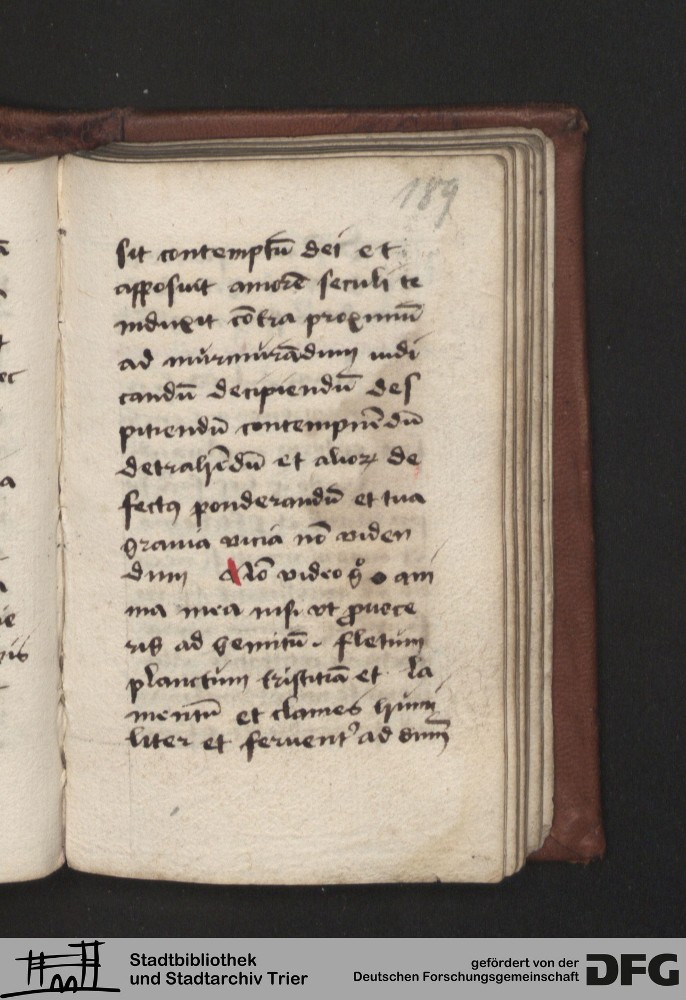 189
sit contemptū dei et
apposuit amorē seculi te
induxit cōtra proximū
ad murmurādum iudi
candū decipiendū des
piciendū contempnēdū
detrahēdū et alioꝝ de
fectꝰ ponderandū et tua
grauia vicia nō viden
dum Nō video gͦ o ani
ma mea nisi vt ꝓuoce
ris ad gemitū fletum
planctum tristitiā et la
mentū et clames humi
liter et feruent᾽ ad dnm̄
Stadtbibliothek
und Stadtarchiv Trier
gefördert von der
Deutschen Forschungsgemeinschaft
DFG